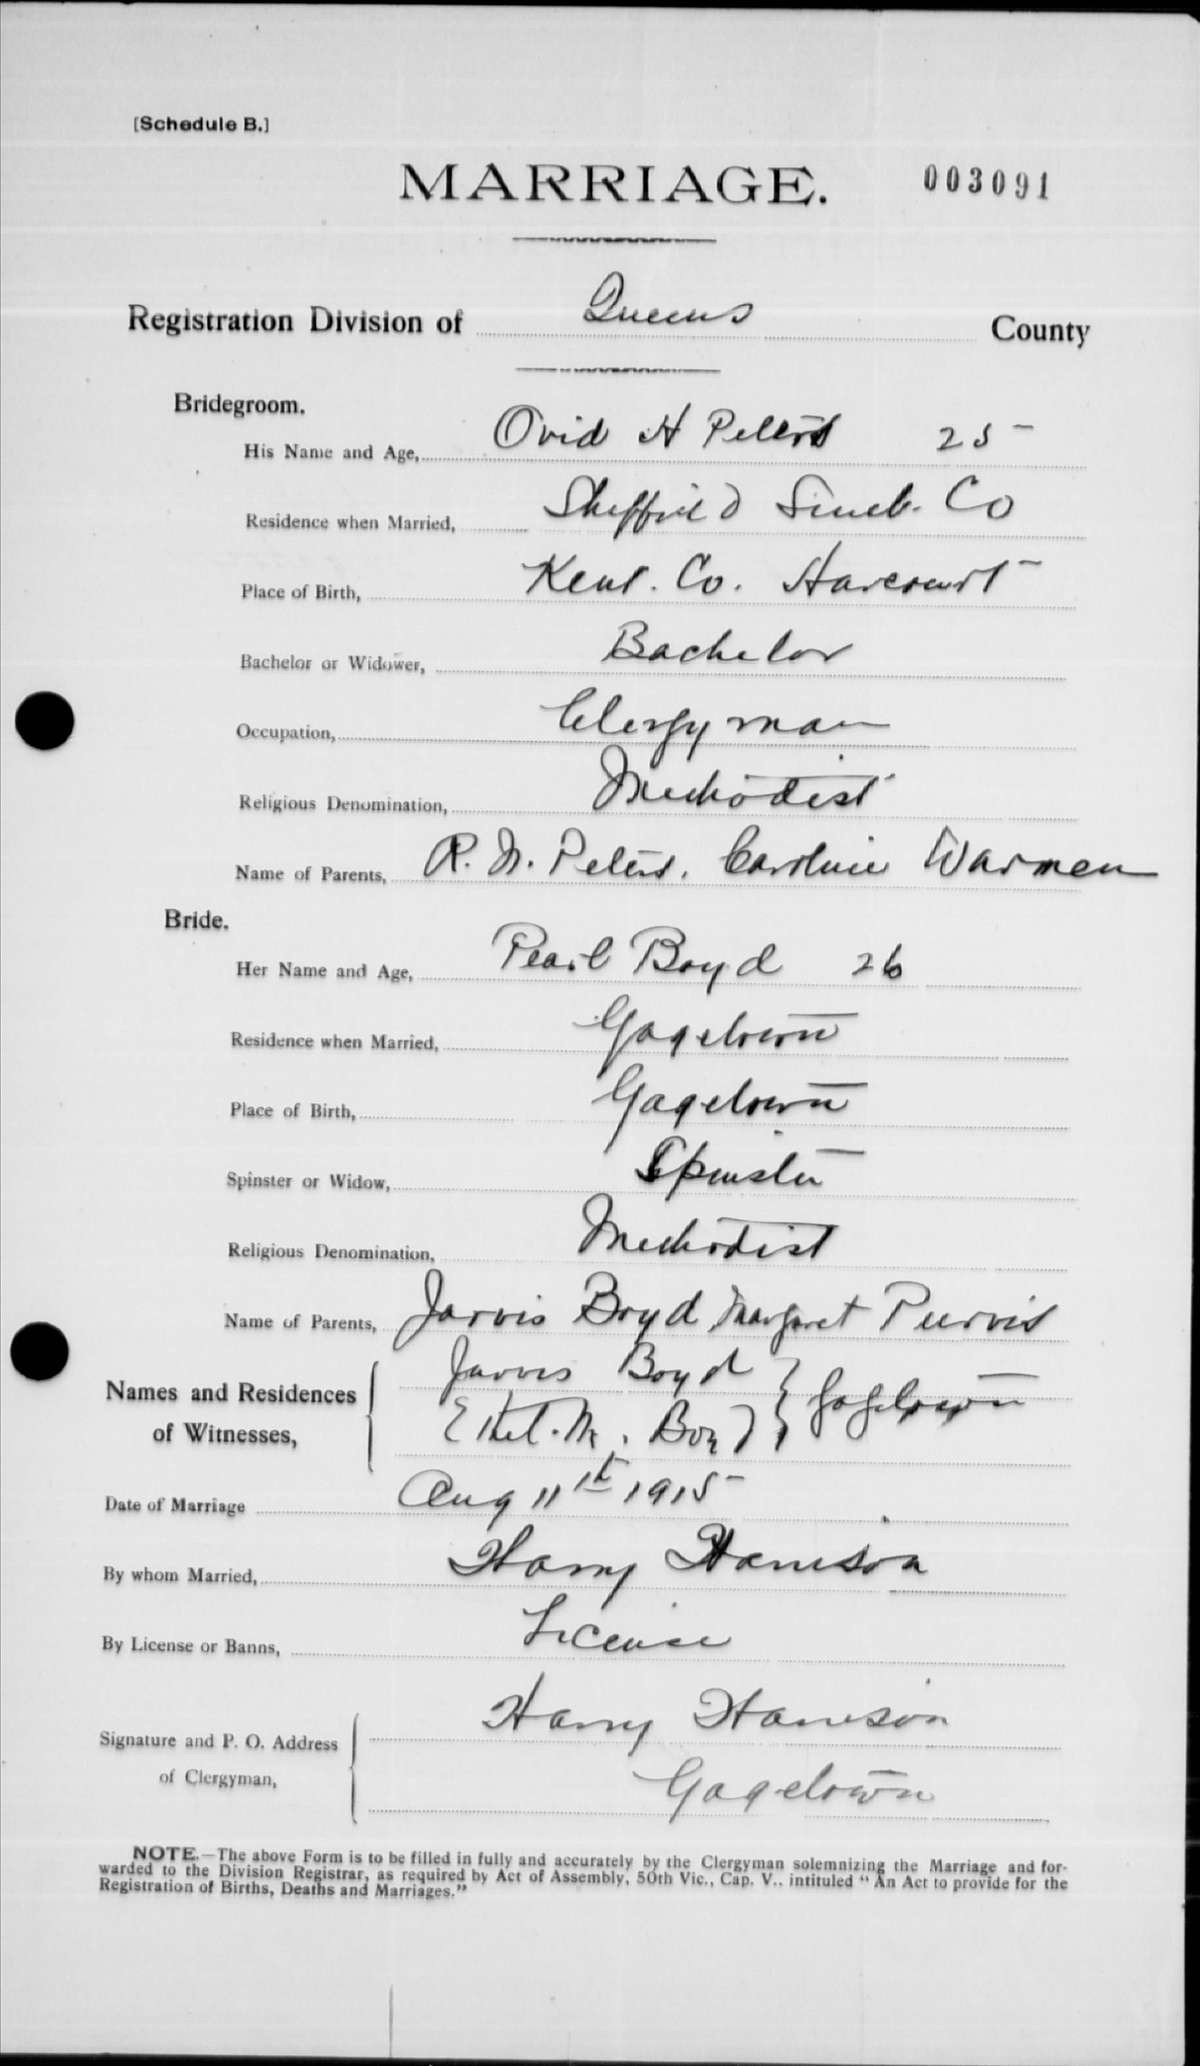 [Schedule B.]
MARRIAGE. 003091
Registration Division of Queens County
Bridegroom.
His Name and Age, Ovid H Peters 25
Residence when Married, Sheffield Sunb. Co
Place of Birth, Kent. Co. Harcourt
Bachelor or Widower, Bachelor
Occupation, Clergyman
Religious Denomination, Methodist
Name of Parents, R. N. Peters. Caroline Warmen
Bride.
Her Name and Age, Pearl Boyd 26
Residence when Married, Gagetown
Place of Birth, Gagetown
Spinster or Widow, Spinster
Religious Denomination, Methodist
Name of Parents, Jarvis Boyd Margaret Purvis
Names and Residences Jarvis Boyd } Gagetown
of Witnesses, Ethel. M. Boyd
Date of Marriage Aug 11th 1915
By whom Married, Harry Harrison
By License or Banns, License
Signature and P. O. Address Harry Harrison
of Clergyman, Gagetown
NOTE.—The above Form is to be filled in fully and accurately by the Clergyman solemnizing the Marriage and for-
warded to the Division Registrar, as required by Act of Assembly, 50th Vic., Cap. V., intituled “ An Act to provide for the
Registration of Births, Deaths and Marriages.”